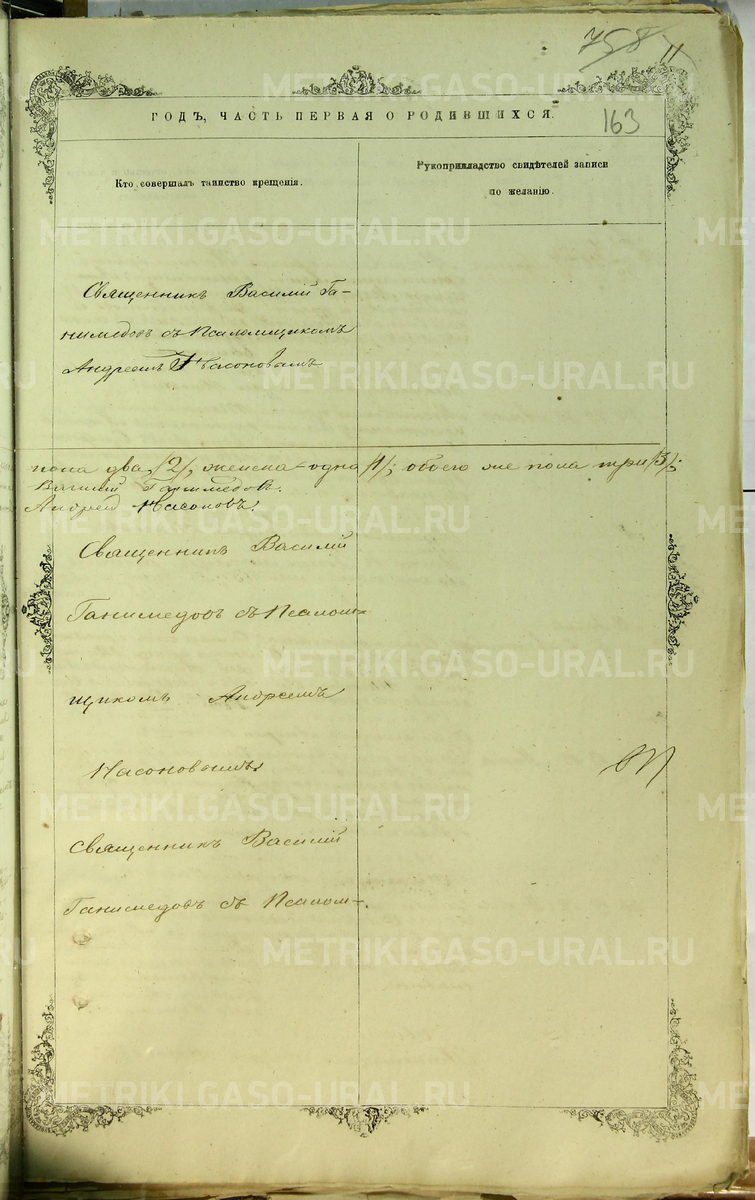 758
11
163
ГОДЪ, ЧАСТЬ ПЕРВАЯ О РОДИВШИХСЯ.
Кто совершалъ таинство крещенія.
Рукоприкладство свидѣтелей записи
по желанію.
Священникъ Василій Га-
нимедовъ съ Псаломщикомъ
Андреемъ Насоновымъ
пола два /2/, женска - одна /1/; обоего же пола три /3/.
Василій Ганимедовъ.
Андрей Насоновъ.
Священникъ Василій
Ганимедовъ съ Псалом-
щикомъ Андреемъ
Насоновымъ
Священникъ Василій
Ганимедовъ съ Псалом-
METRIKI.GASO-URAL.RU